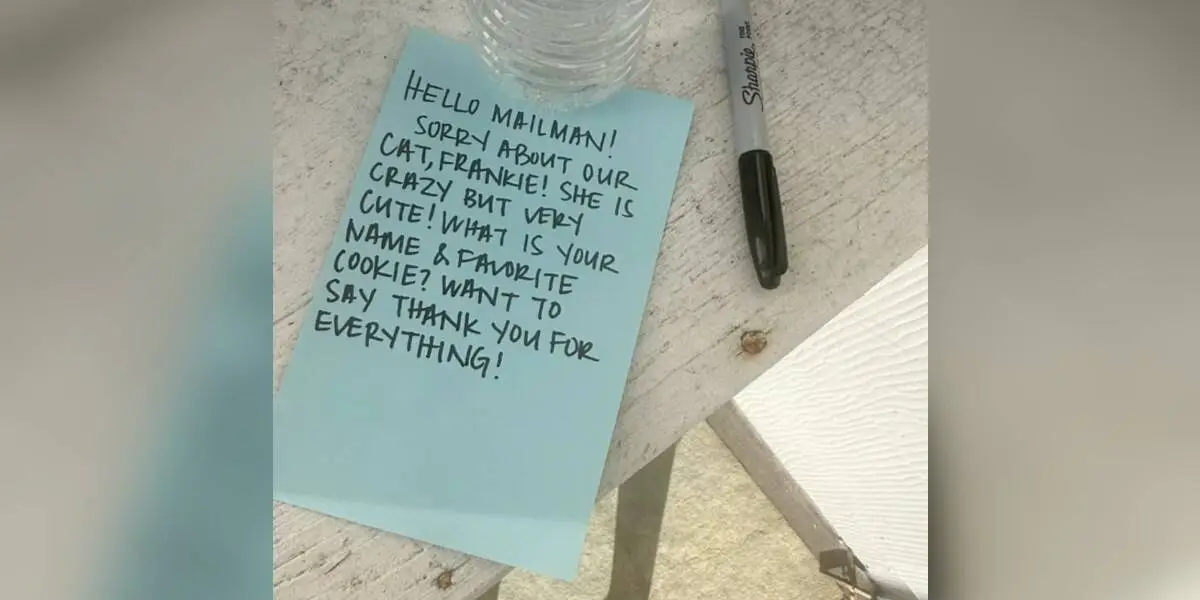 HELLO MAILMAN!
SORRY ABOUT OUR
CAT, FRANKIE! SHE IS
CRAZY BUT VERY
CUTE! WHAT IS YOUR
NAME & FAVORITE
COOKIE? WANT TO
SAY THANK YOU FOR
EVERYTHING!
Sharpie